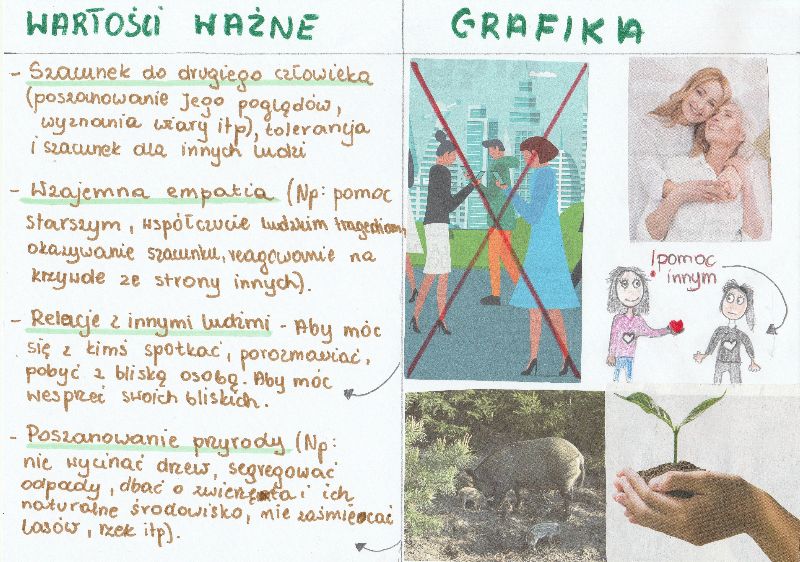 WARTOŚCI WAŻNE
- Szacunek do drugiego człowieka
(poszanowanie Jego poglądów,
wyznania wiary itp), tolerancja
i szacunek dla innych ludzi
- Wzajemna empatia (Np: pomoc
starszym, współczucie ludzkim tragediom,
okazywanie szacunku, reagowanie na
krzywdę ze strony innych).
- Relacje z innymi ludźmi - Aby móc
się z kimś spotkać, porozmawiać,
pobyć z bliską osobą. Aby móc
wesprzeć swoich bliskich.
- Poszanowanie przyrody (Np:
nie wycinać drzew, segregować
odpady, dbać o zwierzęta i ich
naturalne środowisko, nie zaśmiecać
lasów, rzek itp).
GRAFIKA
pomoc
innym